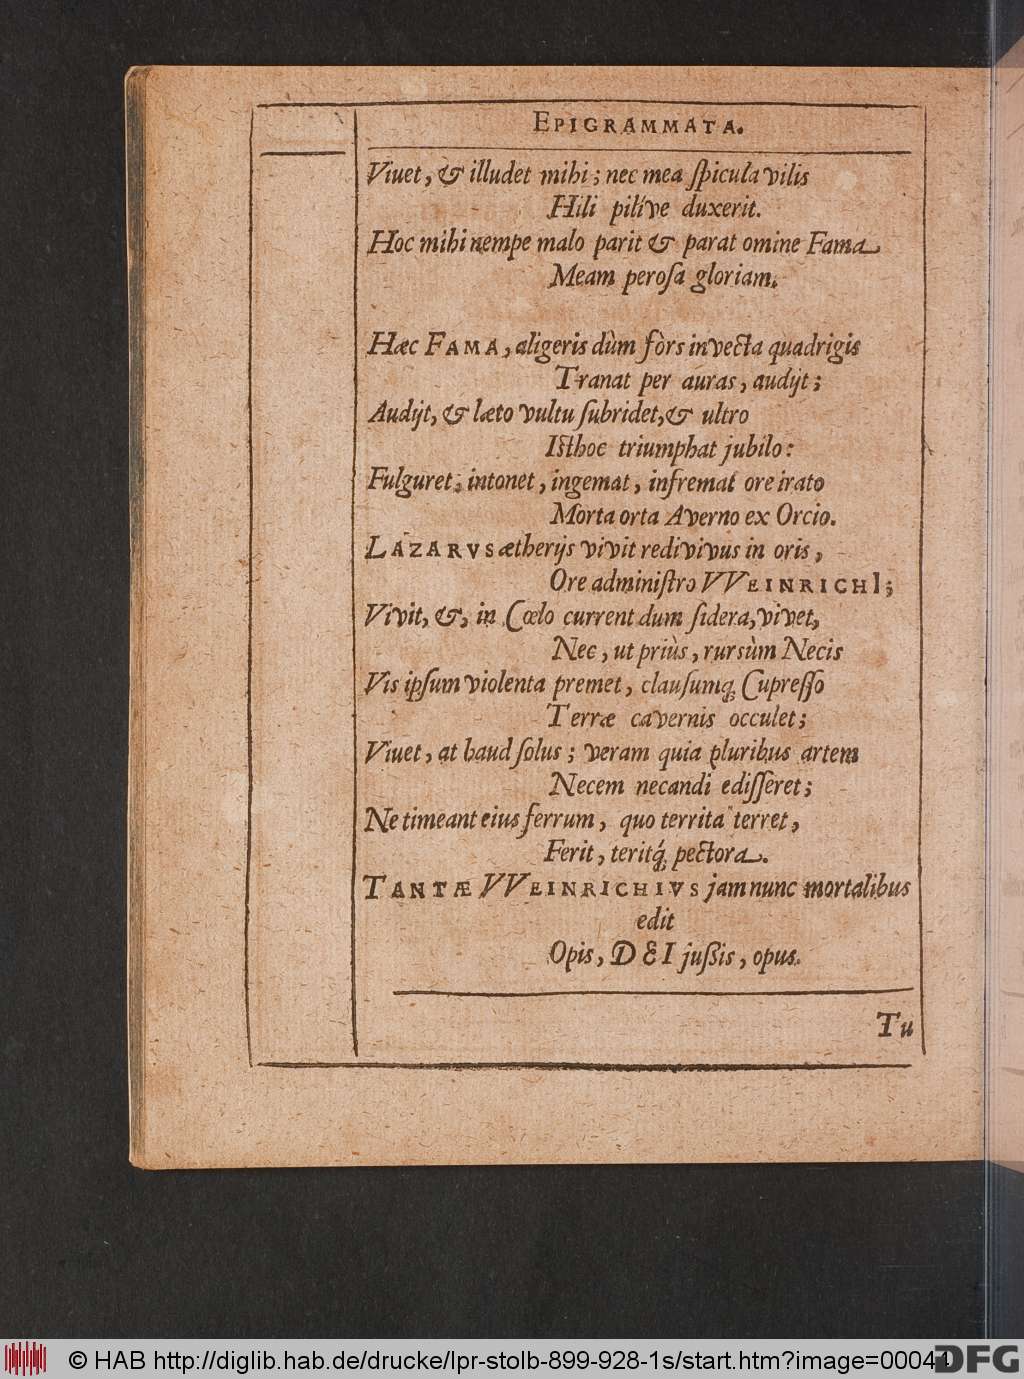 EPIGRAMMATA.
Viuet, & illudet mihi; nec mea ſpicula vilis
Hili pilíve duxerit.
Hoc mihi nempe malo parit & parat omine Fama
Meam peroſa gloriam.
Hæc FAMA, aligeris dùm fòrs invecta quadrigis
Tranat per auras, audijt;
Audijt, & læto vultu ſubridet, & ultro
Iſthoc triumphat jubilo:
Fulguret; intonet, ingemat, infremat ore irato
Morta orta Averno ex Orcio.
LAZARVS ætherijs vivit redivivus in oris,
Ore adminiſtro VVEINRICHI;
Vivit, &, in Cœlo current dum ſidera, vivet,
Nec, ut priùs, rursùm Necis
Vis ipſum violenta premet, clauſumq; Cupreſſo
Terræ cavernis occulet;
Viuet, at haud ſolus; veram quia pluribus artem
Necem necandi ediſſeret;
Ne timeant eius ferrum, quo territa terret,
Ferit, teritq́; pectora.
TANTÆ VVEINRICHIVS jam nunc mortalibus
edit
Opis, DEI juſsis, opus.
Tu
© HAB http://diglib.hab.de/drucke/lpr-stolb-899-928-1s/start.htm?image=00044
DFG